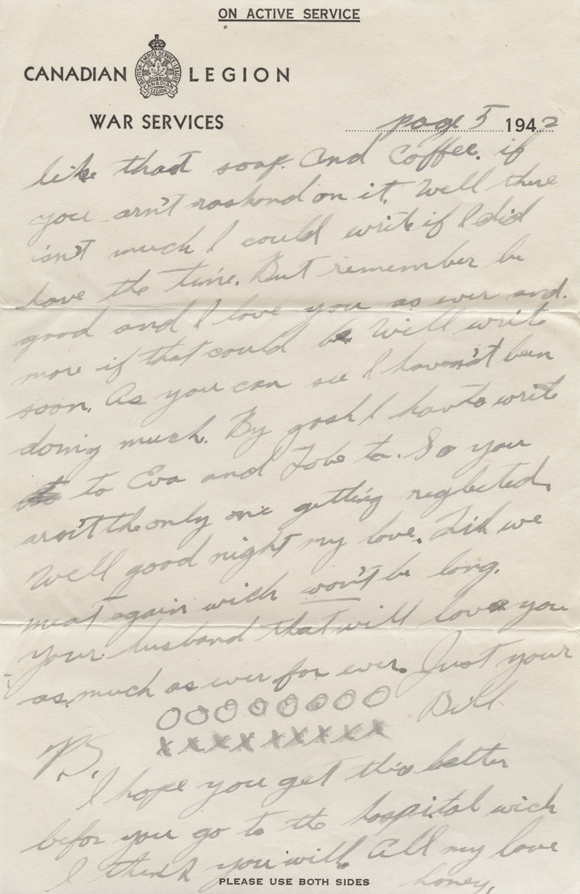 ON ACTIVE SERVICE
CANADIAN LEGION
WAR SERVICES
page 5 1942
like that soap. And Coffee. if
you arn't rashond on it. Well there
isn't much I could write if I did
have the time. But remember be
good and I love you as ever and.
more if that could be. Will write
soon. As you can see I haven't been
doing much. By gosh I have to write
to Eva and to. So you
arn't the only one getting neglected.
Well good night my love. Till we
meat again wich won't be long.
Your husband that will love you
as much as ever for ever. Just your
OOOOOOOOO Bill.
XXXXXXXXX
PS.
I hope you get this letter
befor you go to the hospital wich
I think you will. All my love
honey.
PLEASE USE BOTH SIDES